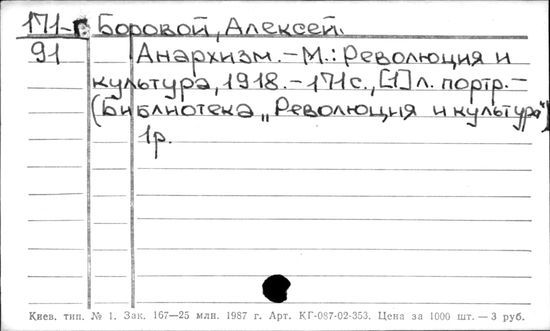 171-г Боровой, Алексей.
91 Анархизм. – М.: Революция и
культура, 1918. – 171с., [1] л. портр. –
(Библиотека „Революция и культура")
1р.
Киев. тип. № 1. Зак. 167—25 млн. 1987 г. Арт. КГ-087-02-353. Цена за 1000 шт. — 3 руб.